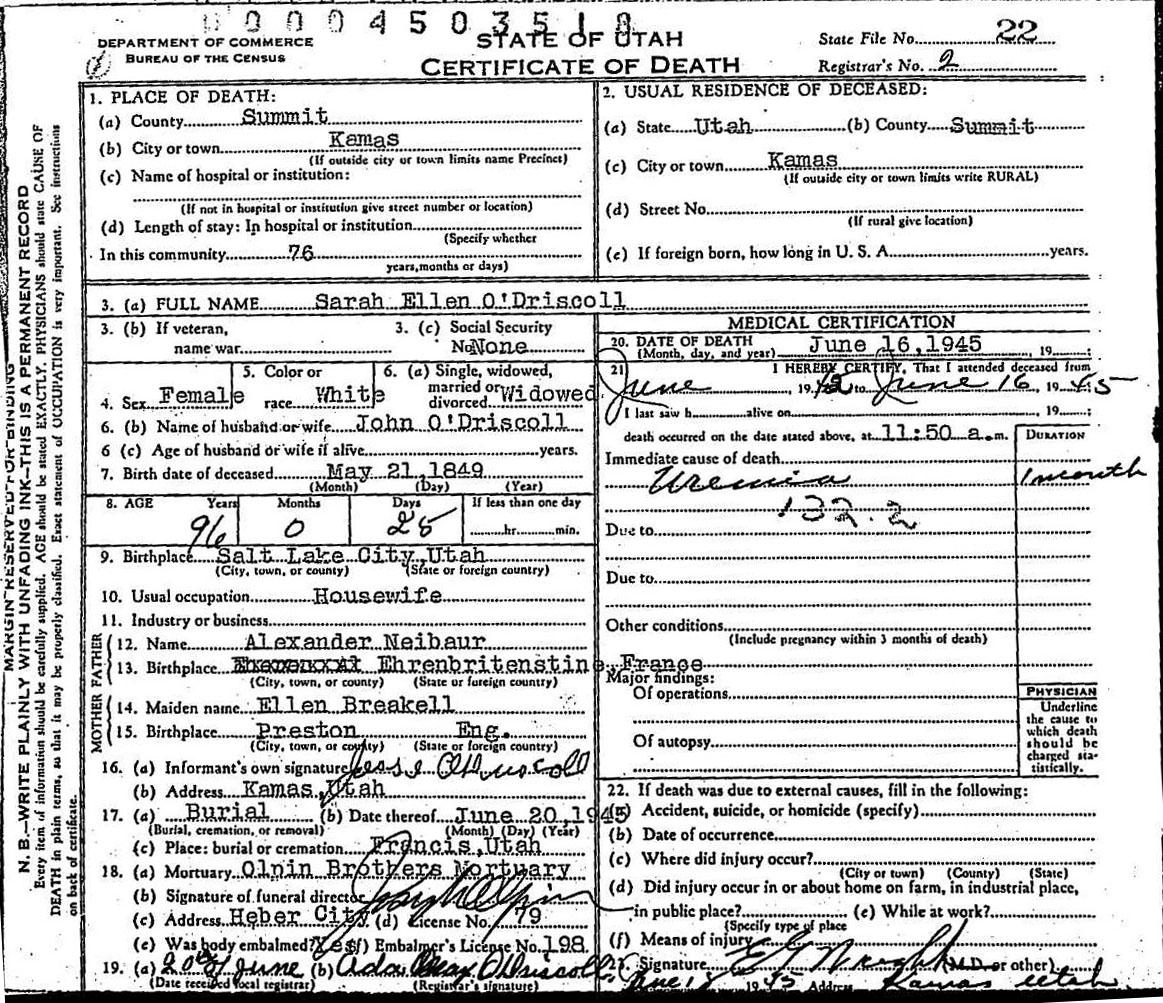 0000450351
STATE OF UTAH
CERTIFICATE OF DEATH
DEPARTMENT OF COMMERCE
BUREAU OF THE CENSUS
State File No. 22
Registrar's No. 2
MARGIN RESERVED FOR BINDING
N. B.—WRITE PLAINLY WITH UNFADING INK—THIS IS A PERMANENT RECORD
Every item of information should be carefully supplied. AGE should be stated EXACTLY. PHYSICIANS should state CAUSE OF
DEATH in plain terms, so that it may be properly classified. Exact statement of OCCUPATION is very important. See instructions
on back of certificate.
1. PLACE OF DEATH:
(a) County Summit
(b) City or town Kamas
(If outside city or town limits name Precinct)
(c) Name of hospital or institution:
(If not in hospital or institution give street number or location)
(d) Length of stay: In hospital or institution
(Specify whether
In this community 76
years, months or days)
2. USUAL RESIDENCE OF DECEASED:
(a) State Utah (b) County Summit
(c) City or town Kamas
(If outside city or town limits write RURAL)
(d) Street No.
(If rural give location)
(e) If foreign born, how long in U. S. A. years.
3. (a) FULL NAME Sarah Ellen O'Driscoll
3. (b) If veteran, name war
3. (c) Social Security No None
4. Sex Female
5. Color or race White
6. (a) Single, widowed, married or divorced Widowed
6. (b) Name of husband or wife John O'Driscoll
6 (c) Age of husband or wife if alive years.
7. Birth date of deceased May 21, 1849
(Month) (Day) (Year)
8. AGE Years Months Days If less than one day
96 0 25 hr. min.
9. Birthplace Salt Lake City, Utah
(City, town, or county) (State or foreign country)
10. Usual occupation Housewife
11. Industry or business
FATHER
12. Name Alexander Neibaur
13. Birthplace Ehrenbritenstine, France
(City, town, or county) (State or foreign country)
MOTHER
14. Maiden name Ellen Breakell
15. Birthplace Preston Eng.
(City, town, or county) (State or foreign country)
16. (a) Informant's own signature Jesse O'Driscoll
(b) Address Kamas, Utah
17. (a) Burial (b) Date thereof June 20, 1945
(Burial, cremation, or removal) (Month) (Day) (Year)
(c) Place: burial or cremation Francis, Utah
18. (a) Mortuary Olpin Brothers Mortuary
(b) Signature of funeral director
(c) Address Heber City (d) License No. 79
(e) Was body embalmed? Yes (f) Embalmer's License No. 198
19. (a) 20th of June (b) Ada May O'Driscoll
(Date received local registrar) (Registrar's signature)
MEDICAL CERTIFICATION
20. DATE OF DEATH June 16, 1945, 19 ;
(Month, day, and year)
21 I HEREBY CERTIFY, That I attended deceased from
June, 19 to June 16, 1945
I last saw h alive on , 19 ;
death occurred on the date stated above, at 11:50 a.m.
DURATION
Immediate cause of death
Uremia 1 month
132.2
Due to
Due to
Other conditions
(Include pregnancy within 3 months of death)
Major findings:
Of operations
Of autopsy
PHYSICIAN
Underline
the cause to
which death
should be
charged sta-
tistically.
22. If death was due to external causes, fill in the following:
(a) Accident, suicide, or homicide (specify)
(b) Date of occurrence
(c) Where did injury occur?
(City or town) (County) (State)
(d) Did injury occur in or about home on farm, in industrial place,
in public place? (e) While at work?
(Specify type of place
(f) Means of injury
Signature (M.D. or other)
1945 Address Kamas Utah